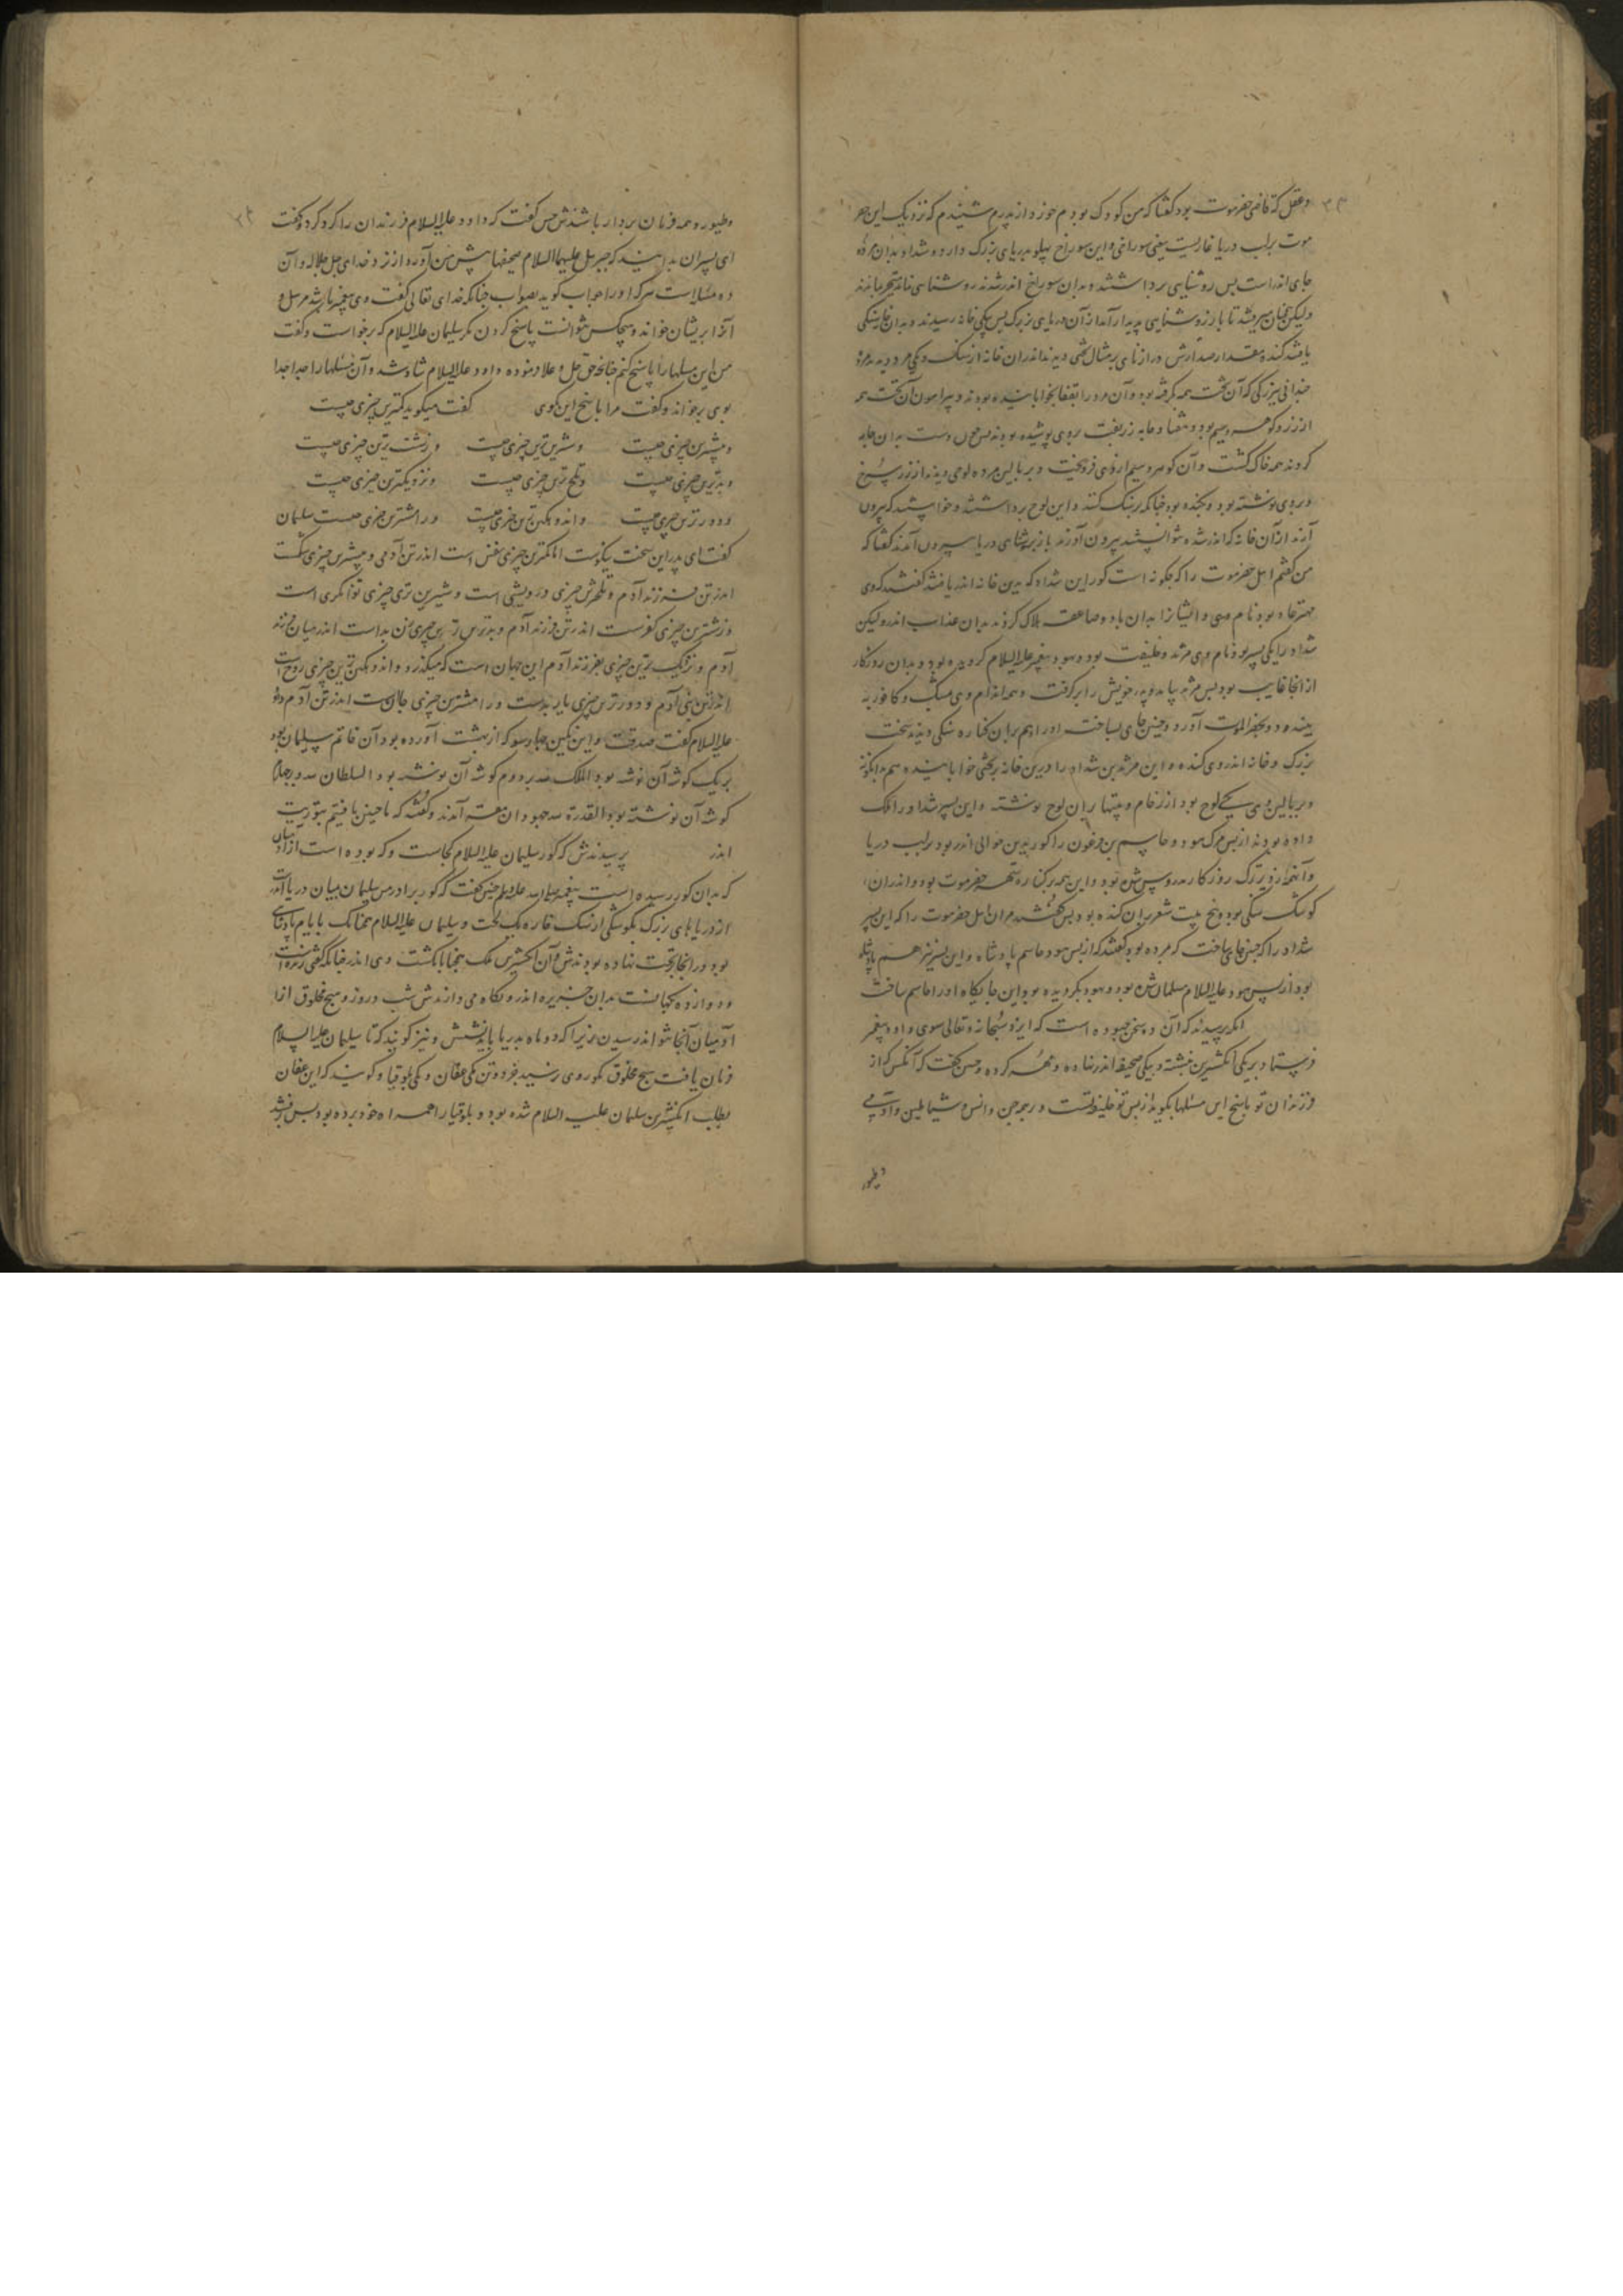 دغفل که قاضی حضرموت بود گفتا که من کودک بودم خرد از پدرم شنیدم که نزدیک این حضر
موت بر لب دریا غاریست یعنی سوراخی و این سوراخ پهلو بدریای بزرگ دارد و شداد بدان مرده
جای اندر است پس روشنایی برداشتند و بدان سوراخ اندر شدند روشنایی نماند
ولیکن همچنان میرفتند تا باز روشنایی پدیدار آمد از آن دریای بزرگ پس یکی خانه رسیدند و بدان
یافتند کنده مقدار صد ارش درازنای بر مثال تختی دیدند اندران خانه از سنگ و یکی مرد دیدند مرده
چندانی بزرگی که آن تخت همه گرفته بود و آن مرد را بقفا بخوابانیده بودند و پیرامون آن تخت همه
از زر و گوهر و سیم بود و هفتاد جامه زربفت بروی پوشیده بودند پس چون دست بدان جامه
کردند همه خاک گشت و آن گوهر و سیم ازوی فرو ریخت و بر بالین مرده لوحی دیدند از زر سرخ
و بروی نوشته بود و بکنده بود چنانکه بر سنگ کنند و این لوح برداشتند و خواستند که بیرون
آرند از آن خانه که اندر شده نتوانستند بیرون آوردند باز بروشنای دریا بیرون آمدند گفتا که
من گفتم اهل حضرموت را که چگونه است گور این شداد که بدین خانه اندر یافتند گفتند که وی
مهتر عاد بود نام وی و ایشانرا بدان باد و صاعقه هلاک کردند بدان عذاب اندر ولیکن
شداد را یکی پسر بود نام وی مرثد و خلیفت بود و بهود پیغمبر علیه السلام گرویده بود و بدان روزگار
از آنجا غایب بود پس مرثد بیامد و پدر خویش را برگرفت و همه اندام وی مشک و کافور به
بیندود و بحضرالموت آورد و چنین جای بساخت او را هم بران کناره سنگی دیدند سخت
بزرگ و خانه اندر وی کنده و این مرثد بن شداد را درین خانه بر تختی خوابانیده هم بدانگونه
و بر بالین وی یکی لوح بود از رخام و بیتها بران لوح نوشته و این پسر شداد را ملک
داده بودند از پس مرگ هود و جاسم بن فرعون را گور بدین حوالی اندر بود بر لب دریا
روزگار پس شده بود و این همه بر کناره شهر حضرموت بود و اندران
کوشک سنگی بود و پنج بیت شعر بران کنده بود پس گفتند مران اهل حضرموت را که این پسر
شداد را که چنین جای ساخت که مرده بود گفتند که از پس هود جاسم پادشاه و این پسر نیز هم پادشاه
بود از پس هود علیه السلام مسلمان شده بود و بهود بگرویده بود این جایگاه او را جاسم ساخت
اگر پرسیدند که آن ده سخن چه بوده است که ایزد سبحانه و تعالی سوی داود پیغمبر
فرستاد بر یکی انگشترین نبشته و بیکی صحیفه اندر نهاده و مهر کرده و چنین گفت که آنکس که از
فرزندان تو پاسخ این مسئلها بگوید از پس تو خلیفه تست و بر همه جن و انس و شیاطین و آدمی
وطیور
وطیور همه فرمان بردار باشندش چنین گفت که داود علیه السلام فرزندان را گرد کرد و گفت
ای پسران بدانید که جبرئیل علیهما السلام صحیفها پیش من آورد از نزد خدای جل جلاله و آن
ده مسئله است هر که او را جواب گوید بصواب چنانکه خدای تعالی گفت وی پیغمبر باشد مرسل و
آنرا بریشان خواند و هیچکس نتوانست پاسخ کردن مگر سلیمان علیه السلام که برخواست و گفت
من این مسئلها را پاسخ کنم چنانچه حق جل و علا فرموده داود علیه السلام شاد شد و آن مسئلها را جدا جدا
بوی برخواند و گفت مرا پاسخ این گوی گفت میگوید کمترین چیزی چیست
و بیشترین چیزی چیست و شیرین ترین چیزی چیست و زشت ترین چیزی چیست
و بدترین چیزی چیست و تلخ ترین چیزی چیست و نزدیکترین چیزی چیست
و دورترین چیزی چیست و اندوهگین ترین چیزی چیست و رامشترین چیزی چیست سلیمان
گفت ای پدر این سخت نیکوست اما کمترین چیزی نفس است اندر تن آدمی و بیشترین چیزی شکست
اندر تن فرزند آدم و تلخترین چیزی درویشی است و شیرین تری چیزی توانگری است
و زشترین چیزی کفرست اندر تن فرزند آدم و بدترین چیزی زن بد است اندر میان فرزند
آدم و نزدیک ترین چیزی بفرزند آدم این جهان است که میگذرد و اندوهگین ترین چیزی روح است
اندر تن بنی آدم و دورترین چیزی و رامشترین چیزی جان است اندر تن آدم داود
علیه السلام گفت صدقت و این نگین چهار سو که از بهشت آورده بود آن خاتم سلیمان بود
بر یک گوشه آن نوشته بود الملک لله بر دوم گوشه آن نوشته بود السلطان لله و بر چهارم
گوشه آن نوشته بود القدرة لله جهودان همه آمدند و گفتند که ما چنین یافتیم بتوریت
اندر پرسیدندش که گور سلیمان علیه السلام کجاست و که بوده است از آدمیان
که بدان گور رسیده است پیغمبر صلی الله علیه و سلم چنین گفت که گور برادر من سلیمان میان دریاست اندر
از دریاهای بزرگ بکوشکی از سنگ خاره یک لخت و سلیمان علیه السلام همچنانک بایام پادشاهی
بود ور آنجا بتخت نهاده بودندش و آن انگشترین ملک همچنان بانگشت وی اندر چنانکه گفتی زنده است
و دوازده نگهبانست بدان جزیره اندر و نگاه می دارندش شب و روز و هیچ مخلوق از
آدمیان آنجا نتواند رسیدن زیرا که دو ماه بدریا بایدشش و نیز گویند که تا سلیمان علیه السلام
فرمان یافت هیچ مخلوق بگور وی نرسید جز دو تن یکی عفان و یکی بلوقیا و گویند که این عفان
بطلب انگشترین سلیمان علیه السلام شده بود و بلوقیا را همراه خود برده بود پس برفتند